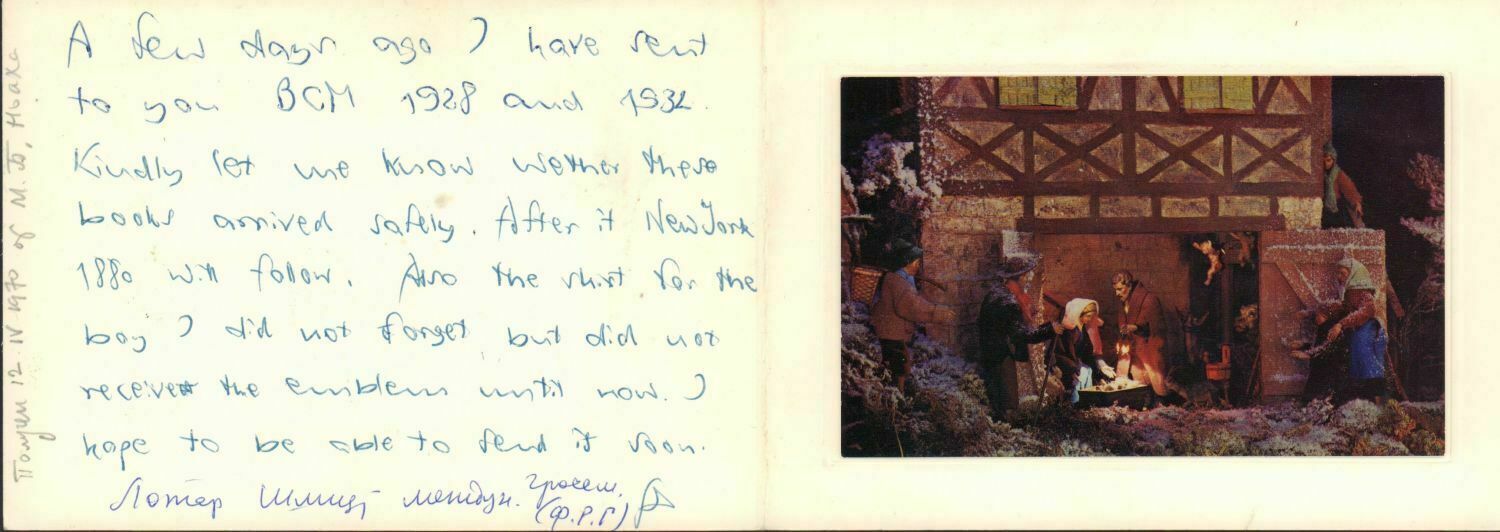 A few days ago I have sent
to you BCM 1928 and 1932.
Kindly let me know wether these
books arrived safely. After it New York
1880 will follow. Also the shirt for the
boy I did not forget, but did not
receive the emblem until now. I
hope to be able to send it soon.
Лотар Шмид, междун. гроссм.
(Ф.Р.Г)
Получен 12.IV 1970 от М.